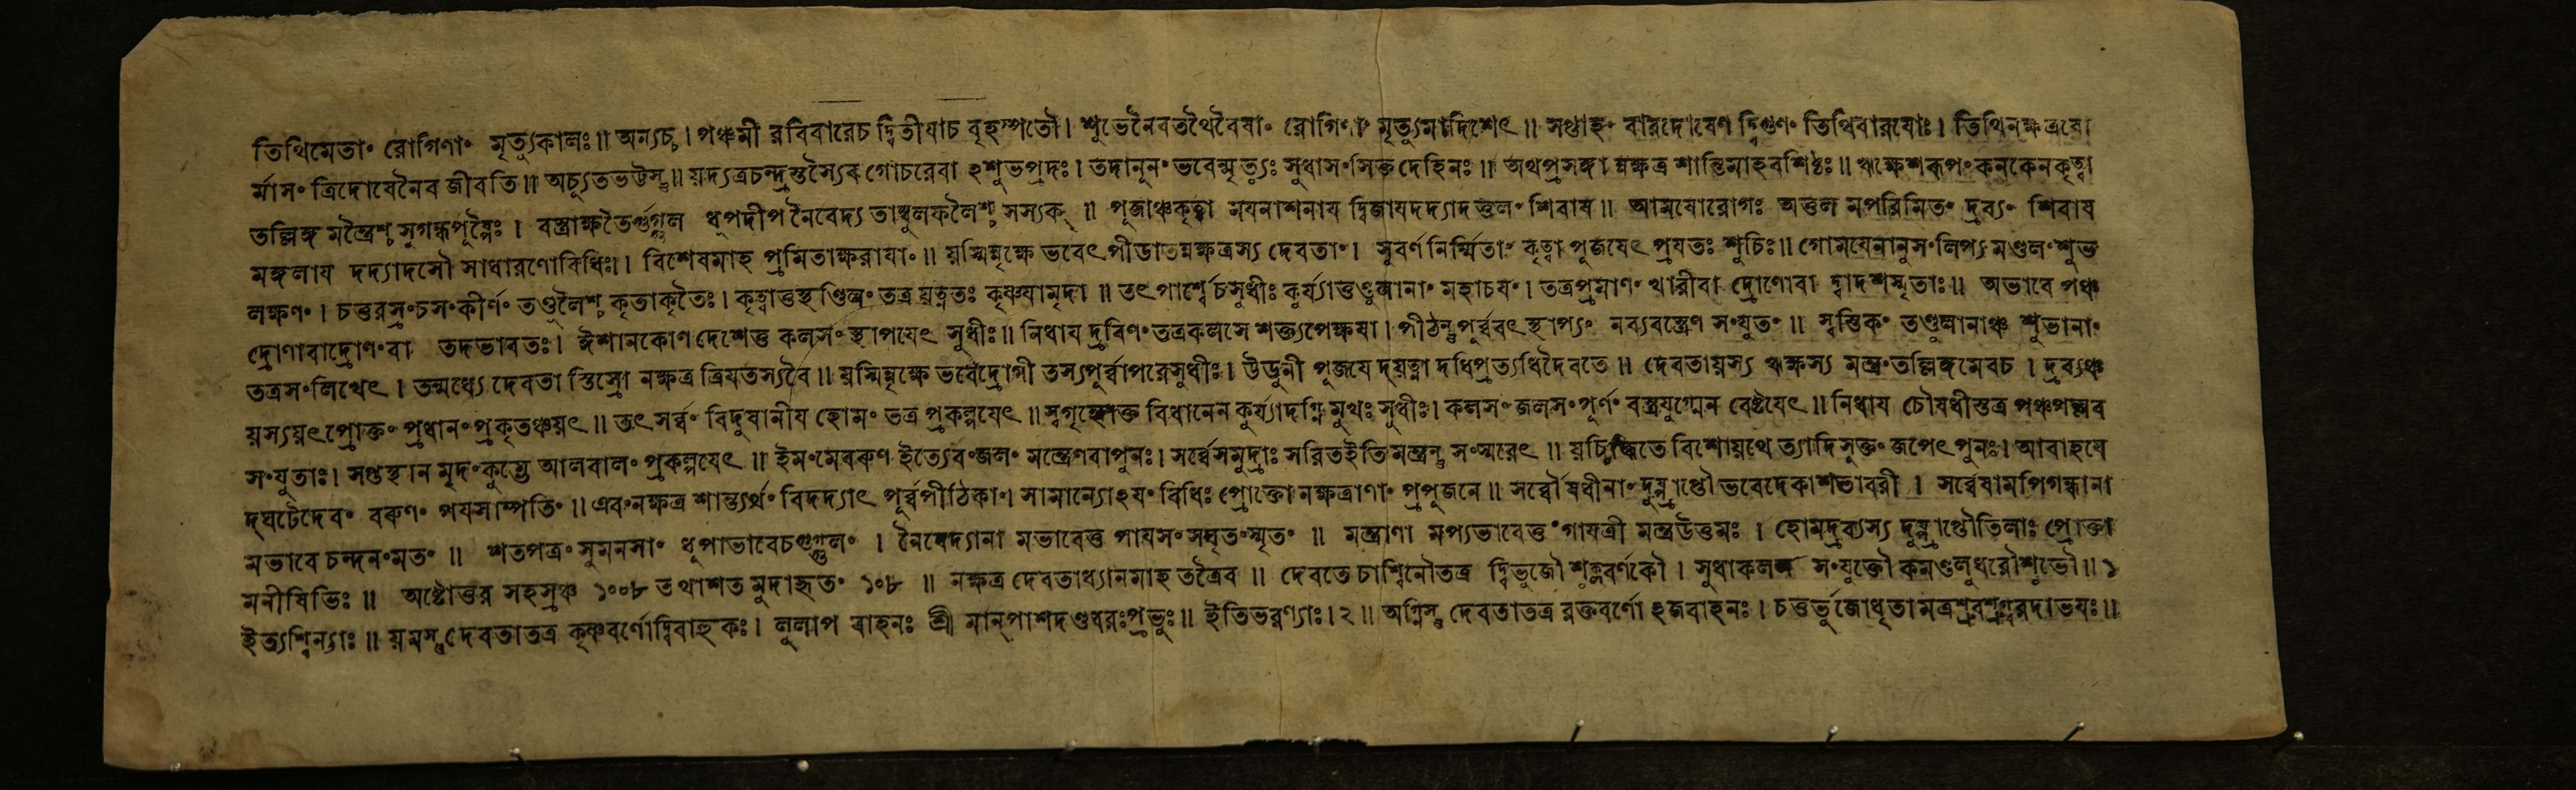 তিথিমেতাং রোগিণাং মৃত্যুকালঃ॥ অন্যচ্চ। পঞ্চমী রবিবারেচ দ্বিতীযাচ বৃহস্পতৌ। শুভেনৈবতথৈবৈষাং রোগিণাং মৃত্যুমাদিশেৎ॥ সপ্তাহং বারদোষেণ দ্বিগুণং তিথিবারযোঃ। তিথিনক্ষত্রযো
র্মাসং ত্রিদোষেনৈব জীবতি॥ অচ্যুতভট্টস্তু॥ য়দ্যত্রচন্দ্রস্তস্যৈব গোচরেবা ঽশুভপ্রদঃ। তদানূনং ভবেন্মৃত্যুঃ সুধাসংসিক্ত দেহিনঃ॥ অথপ্রসঙ্গা ন্নক্ষত্র শান্তিমাহবশিষ্ঠঃ॥ ঋক্ষেশরূপং কনকেনকৃত্বা
তল্লিঙ্গ মন্ত্রৈশ্চ সুগন্ধপুষ্পৈঃ। বস্ত্রাক্ষতৈর্গুগ্গুল ধূপদীপ নৈবেদ্য তাম্বূলফলৈশ্চ সম্যক্॥ পূজাঞ্চকৃত্বা মযনাশনায দ্বিজাযদদ্যাদতুলং শিবায॥ আমযোরোগঃ অতুল মপরিমিতং দ্রব্যং শিবায
মঙ্গলায দদ্যাদসৌ সাধারণোবিধিঃ।। বিশেষমাহ প্রমিতাক্ষরাযাং॥ য়স্মিন্নৃক্ষে ভবেৎপীডাতন্নক্ষত্রস্য দেবতাং। সুবর্ণনির্ম্মিতাং কৃত্বা পূজযেৎ প্রযতঃ শুচিঃ॥ গোমযেনানুসংলিপ্য মণ্ডলংশুভ
লক্ষণং। চতুরস্রংচসংকীর্ণং তণ্ডুলৈশ্চ কৃতাকৃতৈঃ। কৃত্বাতুস্থণ্ডিলং তত্র য়ত্নতঃ কৃষ্ণযামৃদা॥ তৎপার্শ্বেচসুধীঃ কুর্য্যাত্তণ্ডুলানাং মহাচযং। তত্রপ্রমাণং খারীবা দ্রোণোবা দ্বাদশস্মৃতাঃ॥ অভাবে পঞ্চ
দ্রোণাবাদ্রোণংবা তদভাবতঃ। ঈশানকোণদেশেতু কলসং স্থাপযেৎ সুধীঃ॥ নিধায দ্রবিণং তত্রকলসে শক্ত্যপেক্ষযা। পীঠন্তুপূর্ব্ববৎ স্থাপ্যং নব্যবস্ত্রেণ সংযুতং॥ স্বস্তিকং তণ্ডুলানাঞ্চ শুভানাং
তত্রসংলিখেৎ। তন্মধ্যে দেবতা স্তিস্রো নক্ষত্র ত্রিযতস্যবৈ॥ য়স্মিন্নৃক্ষে ভবেদ্রোগী তস্যপূর্ব্বাপরেসুধীঃ। উডুনী পূজযে দ্যত্না দধিপ্রত্যধিদৈবতে॥ দেবতায়স্য ঋক্ষস্য মন্ত্রংতল্লিঙ্গমেবচ। দ্রব্যঞ্চ
য়স্যয়ৎপ্রোক্তং প্রধানংপ্রকৃতঞ্চয়ৎ॥ তৎসর্ব্বং বিদুষানীয হোমং তত্র প্রকল্পযেৎ॥ স্বগৃহ্যোক্ত বিধানেন কুর্য্যাদগ্নিমুখঃ সুধীঃ। কলসংজলসংপূর্ণং বস্ত্রযুগ্মেন বেষ্টযেৎ॥ নিধায চৌষধীস্তত্র পঞ্চপল্লব
সংযুতাঃ। সপ্তস্থান মৃদংকুম্ভে আলবালং প্রকল্পযেৎ॥ ইমংমেবরুণ ইত্যেবংজলং মন্ত্রেণবাপুনঃ। সর্ব্বেসমুদ্রাঃ সরিতইতিমন্ত্রন্তু সংস্মরেৎ॥ য়চ্চিদ্ধিতে বিশোয়থে ত্যাদিসূক্তং জপেৎপুনঃ। আবাহযে
দ্ঘটেদেবং বরুণং পযসাম্পতিং॥ এবংনক্ষত্র শান্ত্যর্থং বিদদ্যাৎ পূর্ব্বপীঠিকাং। সামান্যোঽযং বিধিঃ প্রোক্তো নক্ষত্রাণাং প্রপূজনে॥ সর্ব্বৌষধীনাং দুষ্প্রাপ্তৌ ভবেদেকাশতাবরী। সর্ব্বেষামপিগন্ধানা
মভাবে চন্দনংমতং॥ শতপত্রং সুমনসাং ধূপাভাবেচগুগ্গুলং। নৈবেদ্যানা মভাবেতু পাযসং সঘৃতংস্মৃতং॥ মন্ত্রাণা মপ্যভাবেতু গাযত্রী মন্ত্রউত্তমঃ। হোমদ্রব্যস্য দুষ্প্রাপ্তৌতিলাঃ প্রোক্তা
মনীষিভিঃ॥ অষ্টোত্তর সহস্রঞ্চ ১০০৮ তথাশত মুদাহৃতং ১০৮॥ নক্ষত্র দেবতাধ্যানমাহ তত্রৈব॥ দেবতে চাশ্বিনৌতত্র দ্বিভুজৌ শুক্লবর্ণকৌ। সুধাকলশ সংযুক্তৌ কমণ্ডলুধরৌশুভৌ॥ ১
ইত্যশ্বিন্যাঃ॥ য়মস্তুদেবতাতত্র কৃষ্ণবর্ণোদ্বিবাহুকঃ। লুলাপ বাহনঃ শ্রী মান্পাশদণ্ডধরঃপ্রভুঃ॥ ইতিভরণ্যাঃ।২॥ অগ্নিস্তু দেবতাতত্র রক্তবর্ণো ঽজবাহনঃ। চতুর্ভুজোধৃতামত্রশ্রুবশ্রুগ্বরদাভযঃ॥